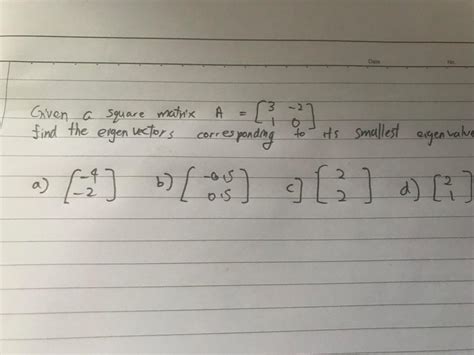 Date
No.
Given a square matrix A = [3 -2
1 0]
find the eigen vectors corresponding to its smallest eigenvalue
a) [-4
-2] b) [-0.5
0.5] c) [2
2] d) [2
1]